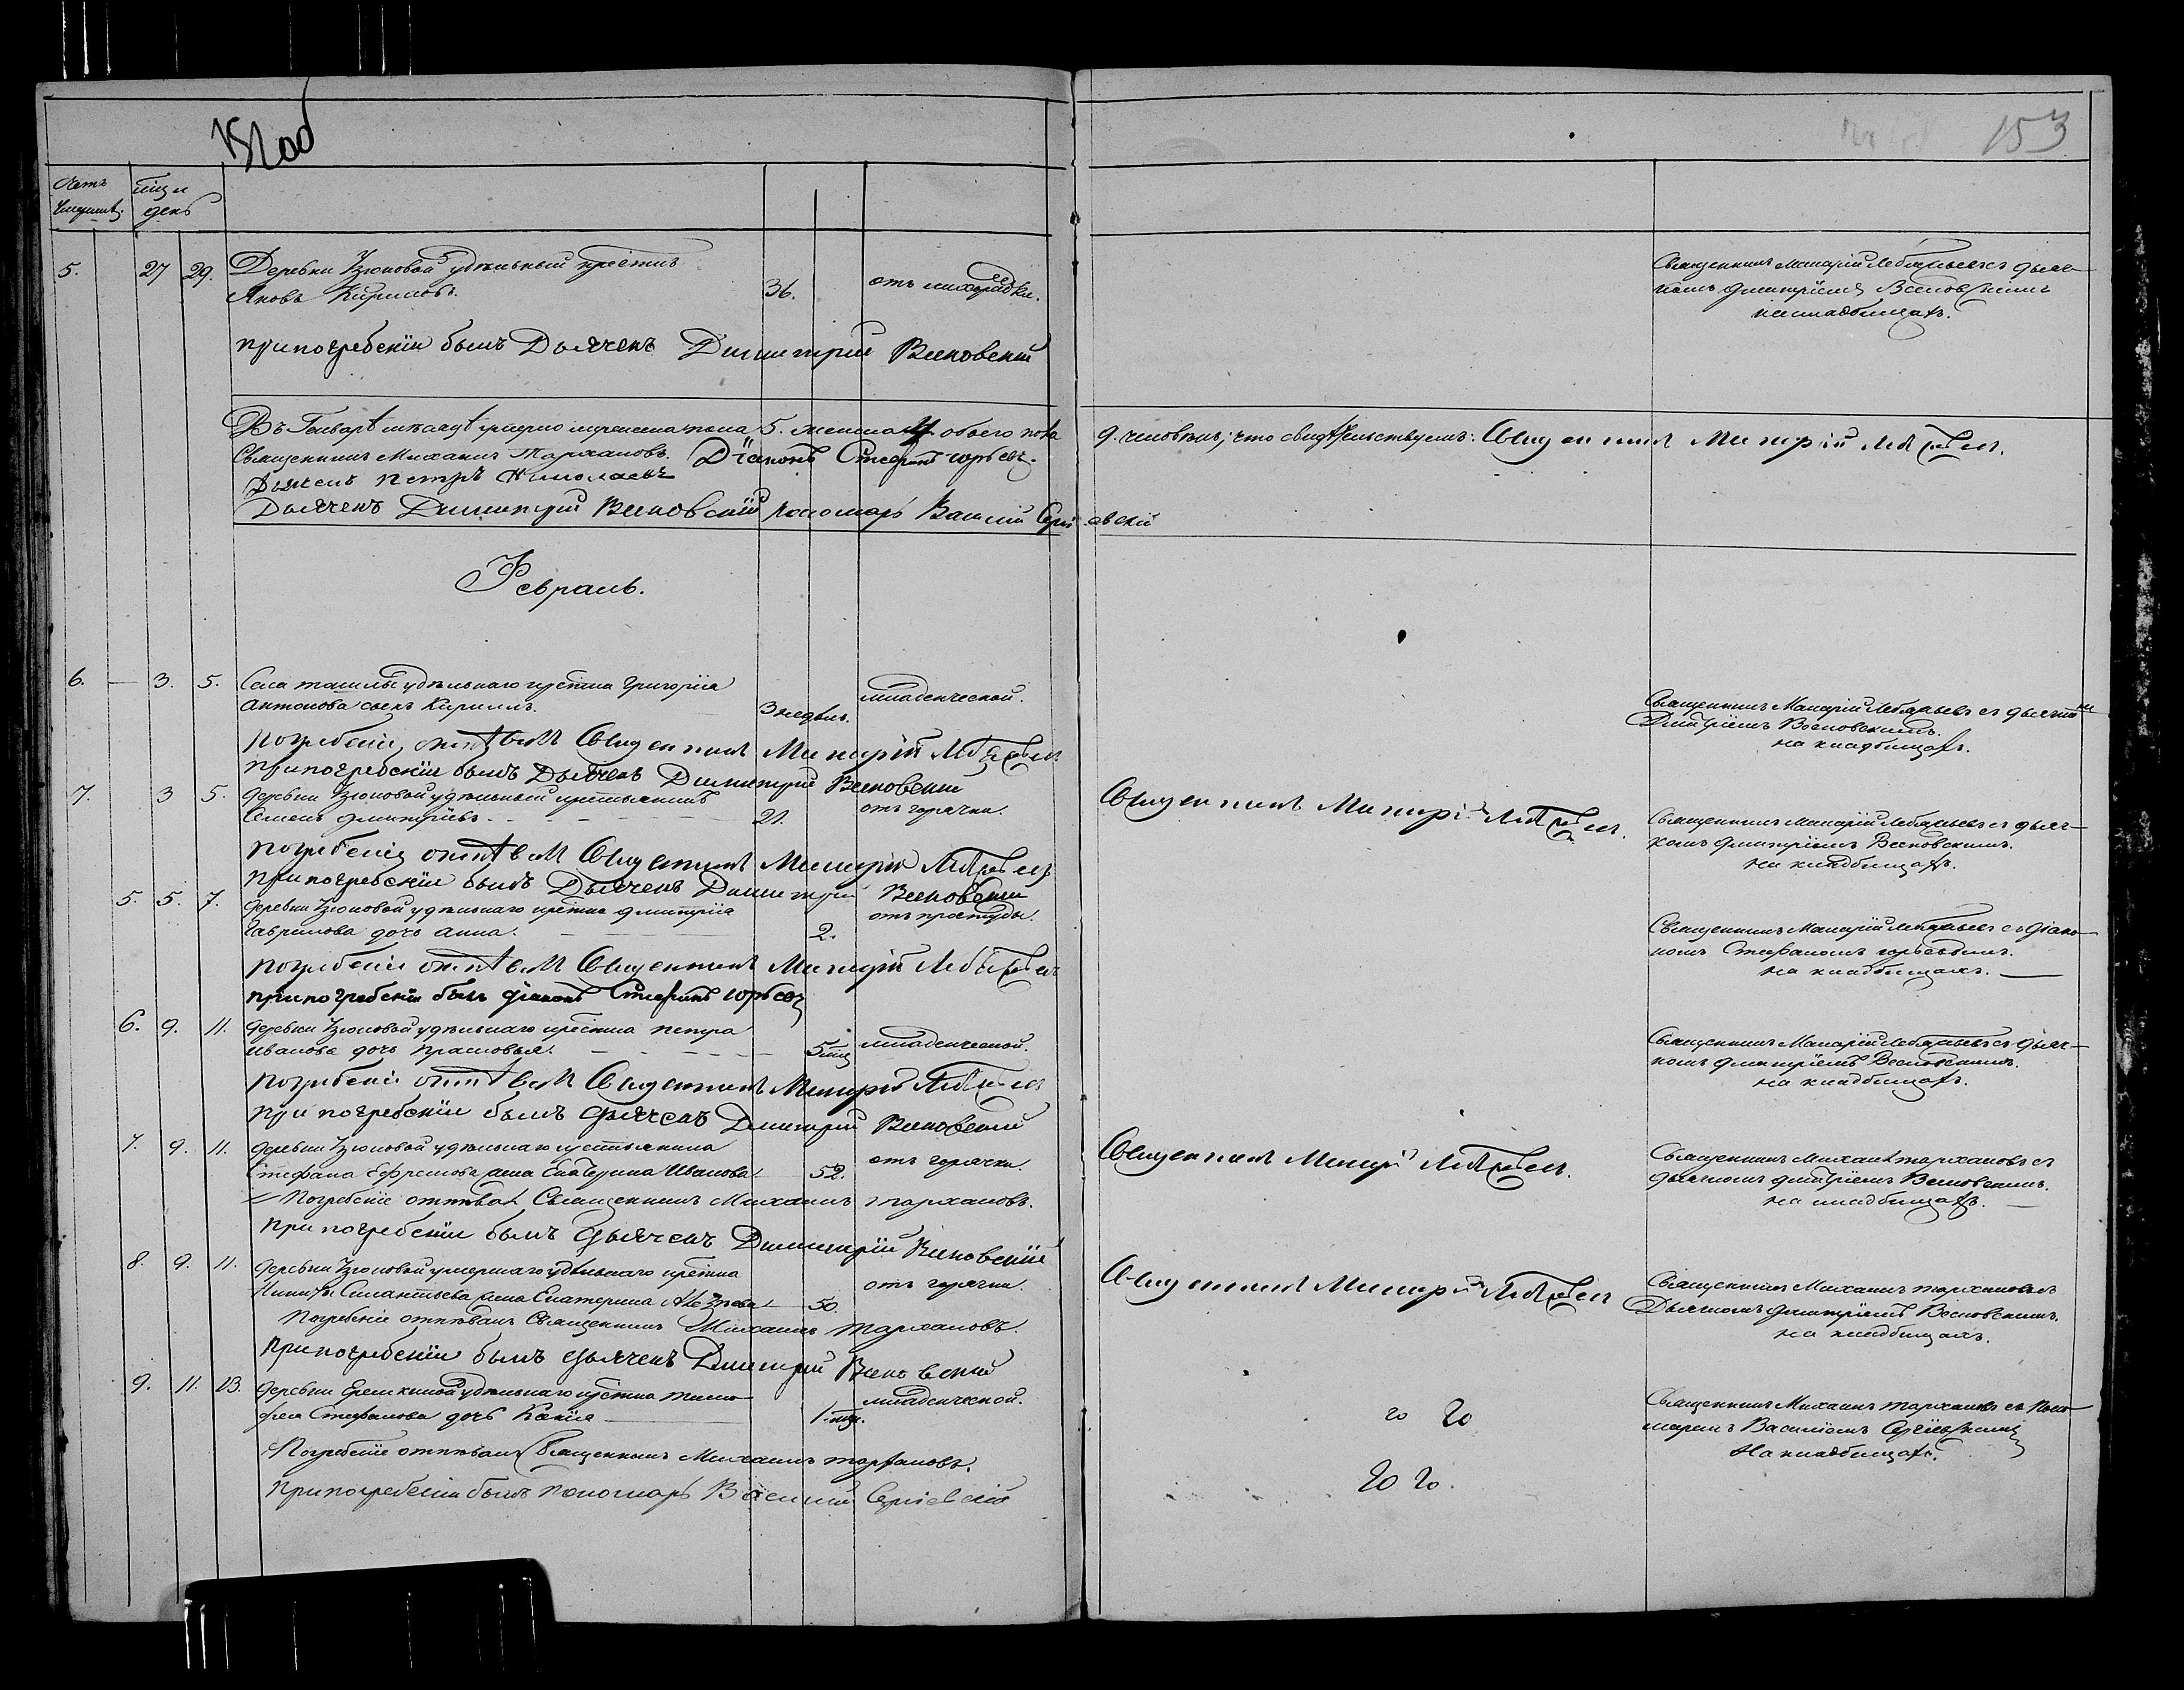 153
Счетъ умершихъ.
Мцъ и день
5. 27 29. Деревни Узюковой удѣльный крестнъ
Яковъ Кириловъ. 36. отъ лихорадки.
Священникъ Макарій Лебедевъ съ дьяч-
комъ Димитріемъ Весновскимъ
на кладбищахъ.
при погребеніи былъ Дьячекъ Димитрій Весновскій
Въ Генварѣ мѣсяцѣ умерло мужеска пола 5. женска 4 обоего пола 9. человѣкъ; что свидѣтельствуемъ: Священникъ Макарій
Священникъ Михаилъ Тархановъ. Діаконъ Стефанъ Юрьевъ.
Дьячекъ Петръ Николаевъ
Дьячекъ Димитрій Весновскій пономарь Василій Сергіевскій
Февраль.
6. — 3. 5. Села Ташлы удѣльнаго крестна Григорія
Антонова сынъ Кирилъ. 3 недѣл. младенческой.
Священникъ Макарій съ дьячкомъ
Димитріемъ Весновскимъ.
на кладбищахъ.
Погребеніе отпѣвалъ Священникъ Макарій
при погребеніи былъ Дьячекъ Димитрій Весновскій
7. 3 5. Деревни Узюковой удѣльный крестьянинъ
Семенъ Димитріевъ. 21. отъ горячки.
Священникъ Макарій
Священникъ Макарій съ дьяч-
комъ Димитріемъ Весновскимъ.
на кладбищахъ.
Погребеніе отпѣвалъ Священникъ Макарій
при погребеніи былъ Дьячекъ Димитрій Весновскій
5. 5. 7. Деревни Узюковой удѣльнаго крестна Димитрія
Гаврилова дочь Анна. 2. отъ простуды.
Священникъ Макарій съ діако-
номъ Стефаномъ Юрьевымъ.
на кладбищахъ.
Погребеніе отпѣвалъ Священникъ Макарій
при погребеніи былъ діаконъ Стефанъ Юрьевъ
6. 9. 11. Деревни Узюковой удѣльнаго крестна Петра
Иванова дочь Прасковья. 5 мцъ младенческой.
Священникъ Макарій съ дьяч-
комъ Димитріемъ Весновскимъ.
на кладбищахъ.
Погребеніе отпѣвалъ Священникъ Макарій
при погребеніи былъ дьячекъ Димитрій Весновскій
7. 9. 11. Деревни Узюковой удѣльнаго крестьянина
Стефана Ефремова жена Екатерина Иванова 52. отъ горячки.
Священникъ Макарій
Священникъ Михаилъ Тархановъ съ
дьячкомъ Димитріемъ Весновскимъ.
на кладбищахъ.
Погребеніе отпѣвалъ Священникъ Михаилъ Тархановъ.
при погребеніи былъ дьячекъ Димитрій Весновскій
8. 9. 11. Деревни Узюковой умершаго удѣльнаго крестна
Никиты жена Екатерина 50. отъ горячки.
Священникъ Макарій
Священникъ Михаилъ Тархановъ съ
Дьячкомъ Димитріемъ Весновскимъ.
на кладбищахъ.
Погребеніе отпѣвалъ Священникъ Михаилъ Тархановъ.
при погребеніи былъ дьячекъ Димитрій Весновскій
9. 11. 13. Деревни Еремкиной удѣльнаго крестна Тимо-
фея Стефанова дочь Ксенія 1. мцъ. младенческой.
Священникъ Михаилъ Тархановъ съ поно-
маремъ Василіемъ Сергіевскимъ
на кладбищахъ.
Погребеніе отпѣвалъ Священникъ Михаилъ Тархановъ.
при погребеніи былъ пономарь Василій Сергіевскій